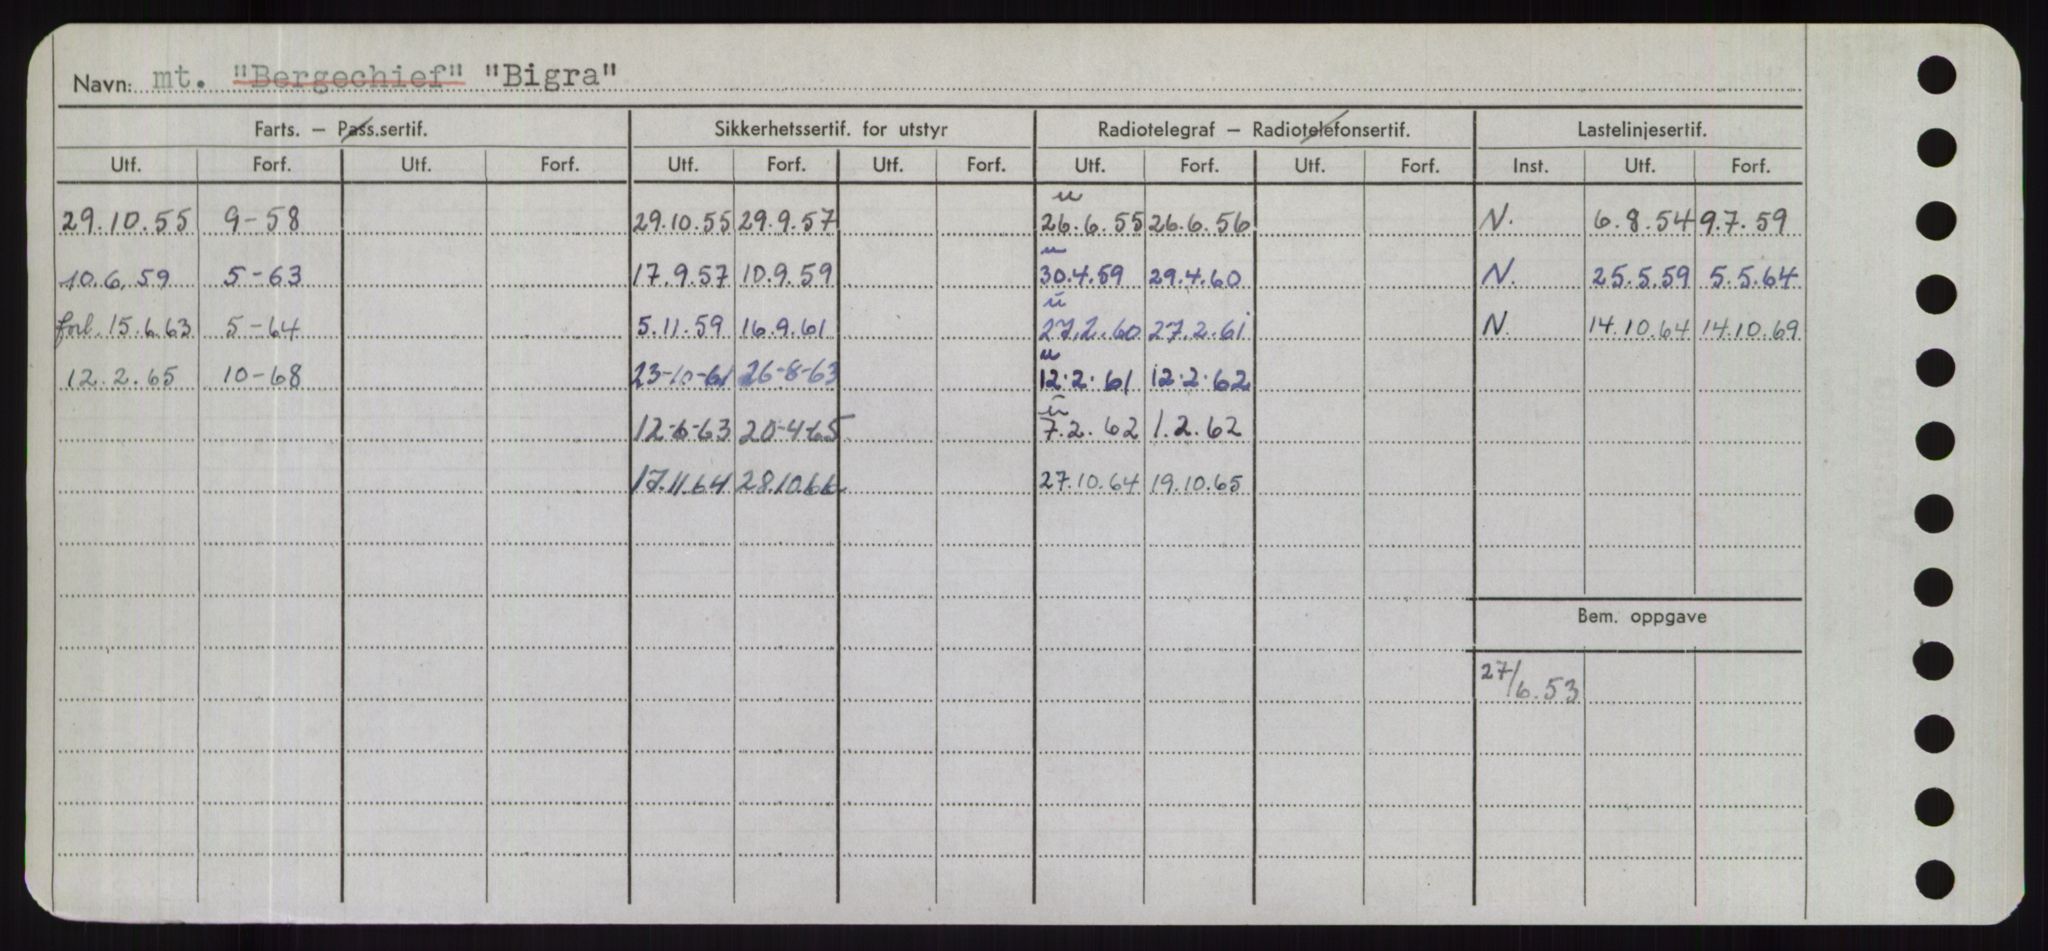 Navn: mt. "Bergechief" "Bigra"
Farts. – Pass.sertif. Sikkerhetssertif. for utstyr Radiotelegraf – Radiotelefonsertif. Lastelinjesertif.
Utf. Forf. Utf. Forf. Utf. Forf. Utf. Forf. Utf. Forf. Utf. Forf. Inst. Utf. Forf.
u
29.10.55 9-58 29.10.55 29.9.57 26.6.55 26.6.56 N. 6.8.54 9.7.59
u
10.6.59 5-63 17.9.57 10.9.59 30.4.59 29.4.60 N. 25.5.59 5.5.64
u
forl. 15.6.63 5-64 5.11.59 16.9.61 27.2.60 27.2.61 N. 14.10.64 14.10.69
u
12.2.65 10-68 23-10-61 26-8-63 12.2.61 12.2.62
u
12-6-63 20-4-65 7.2.62 1.2.62
17.11.64 28.10.66 27.10.64 19.10.65
Bem. oppgave
27/6.53